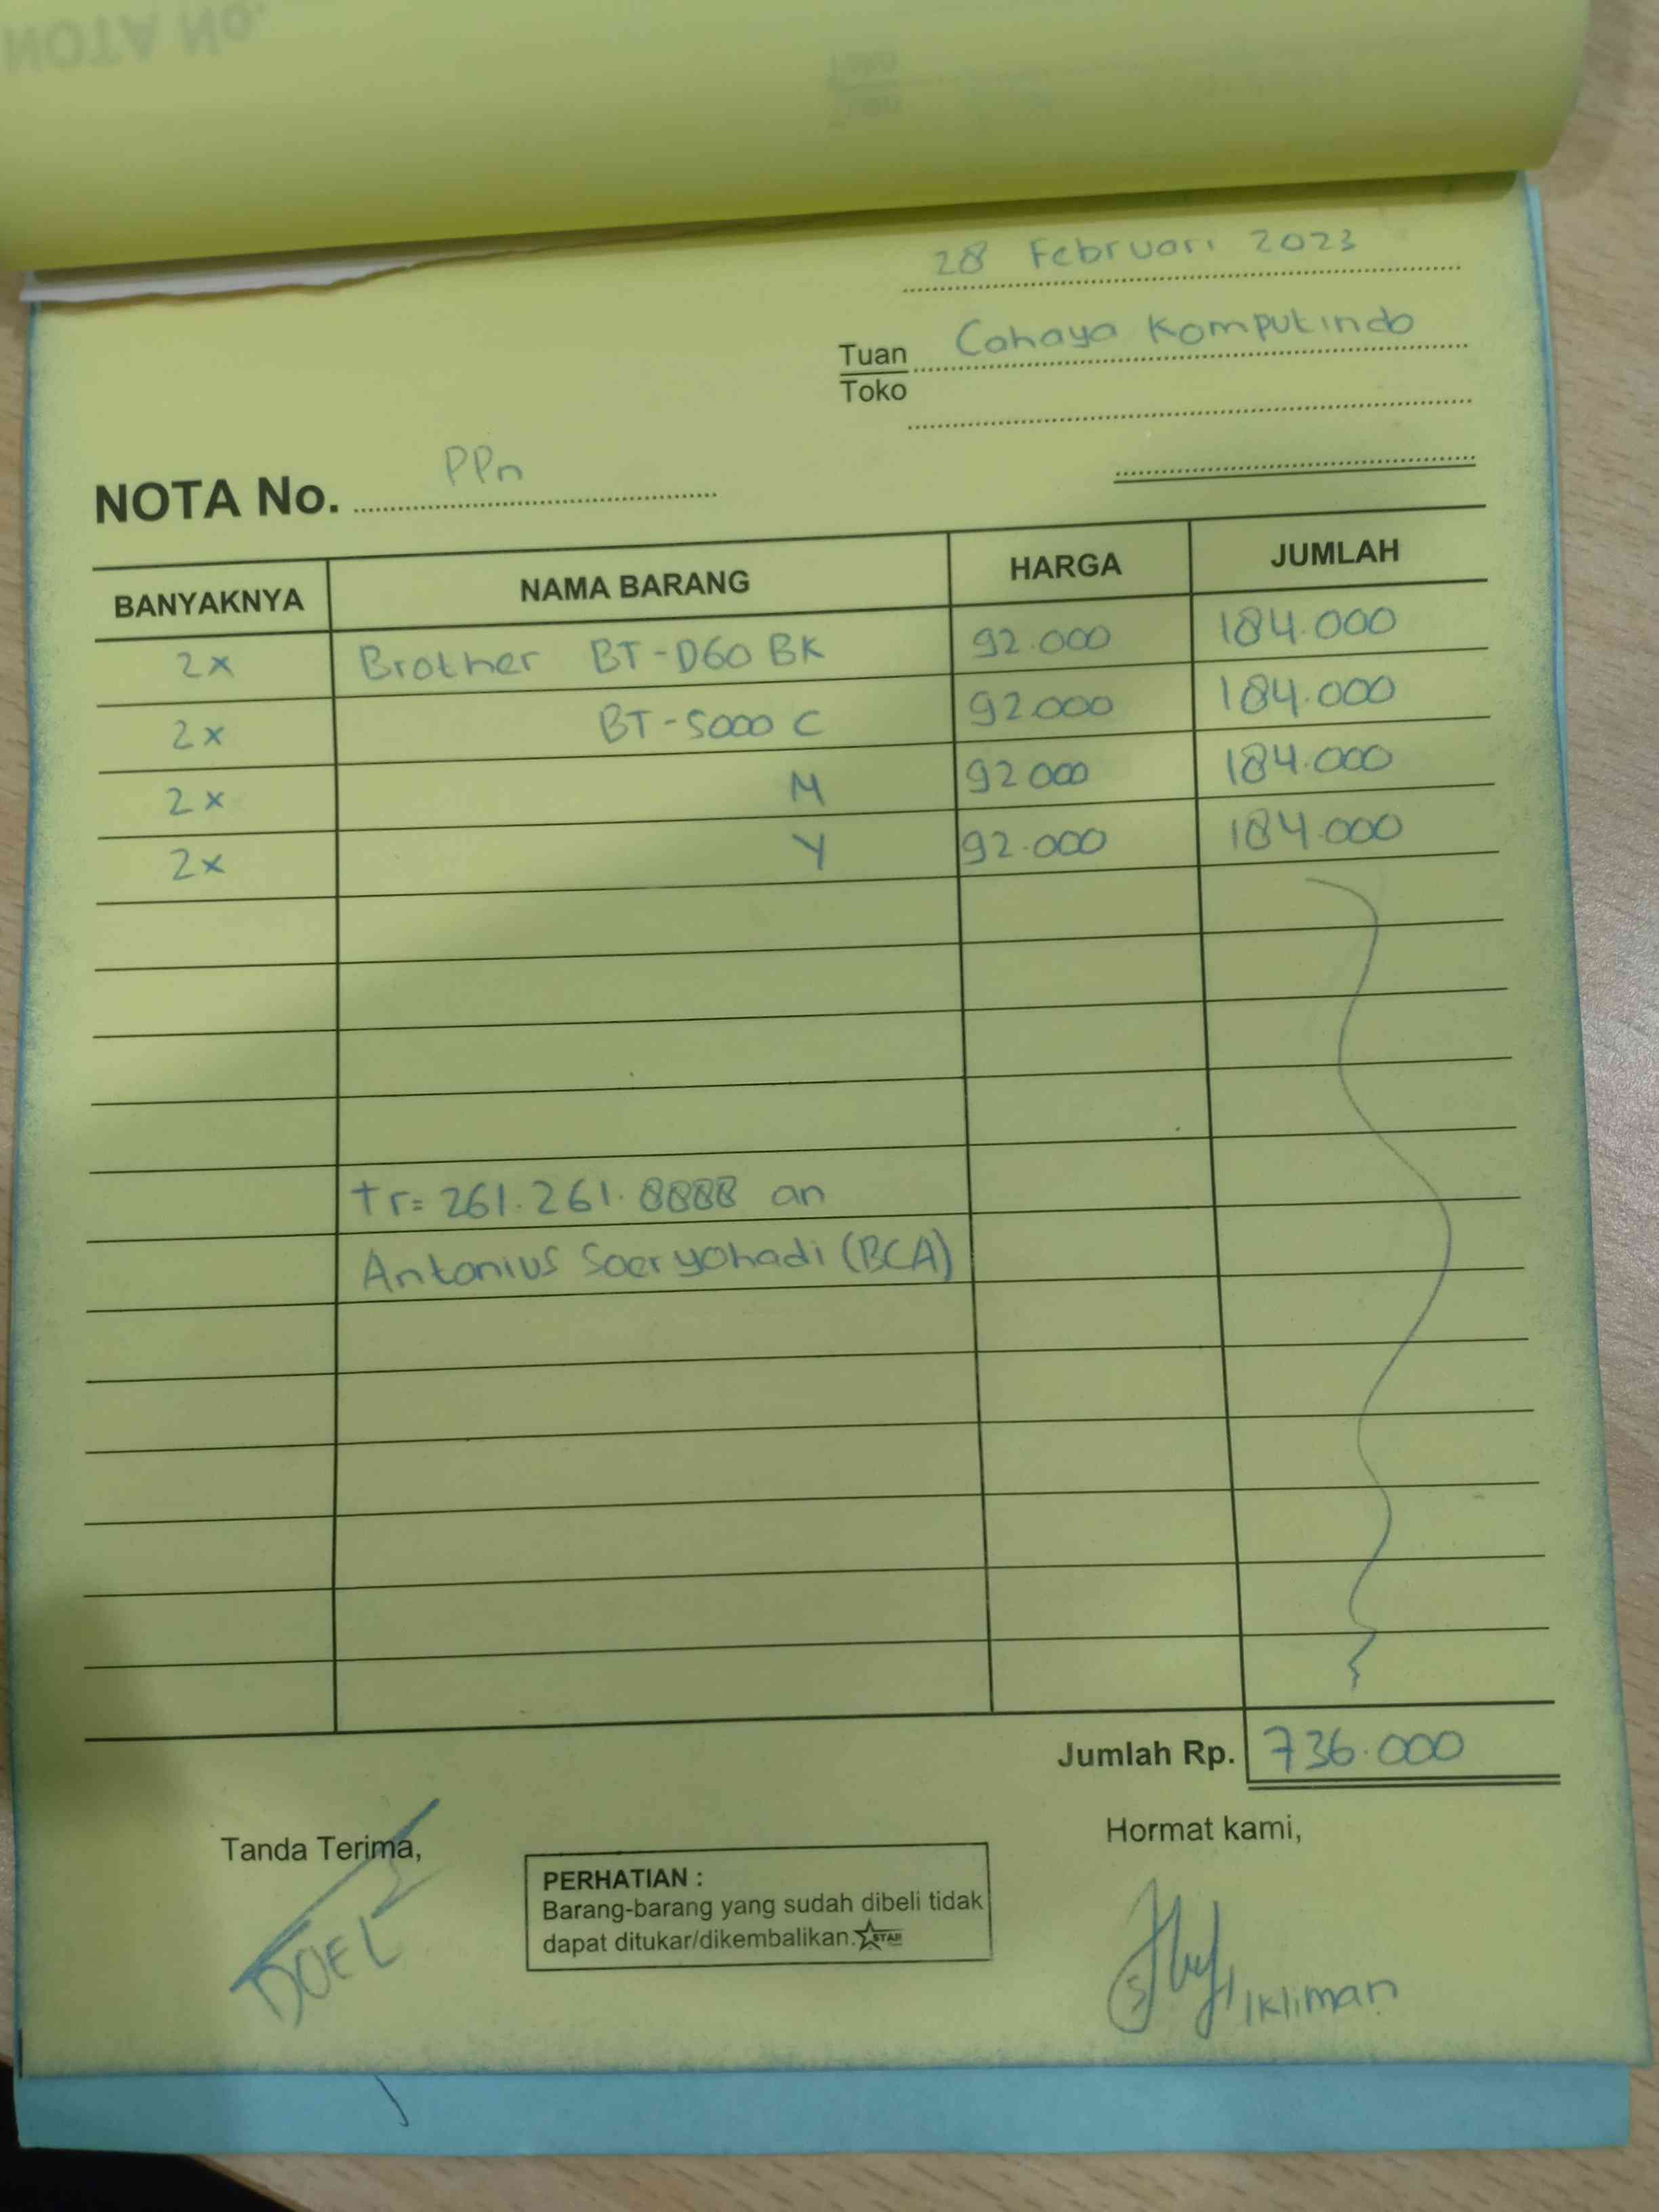 NOTA No.
28 Februari 2023
Tuan Cahaya Komputindo
Toko
NOTA No. PPn
BANYAKNYA NAMA BARANG HARGA JUMLAH
2x Brother BT-D60 BK 92.000 184.000
2x BT-5000 C 92.000 184.000
2x M 92.000 184.000
2x Y 92.000 184.000
tr= 261.261.8888 an
Antonius Soeryohadi (BCA)
Jumlah Rp. 736.000
Tanda Terima,
DOEL
PERHATIAN :
Barang-barang yang sudah dibeli tidak
dapat ditukar/dikembalikan. STAR
Hormat kami,
Ikliman